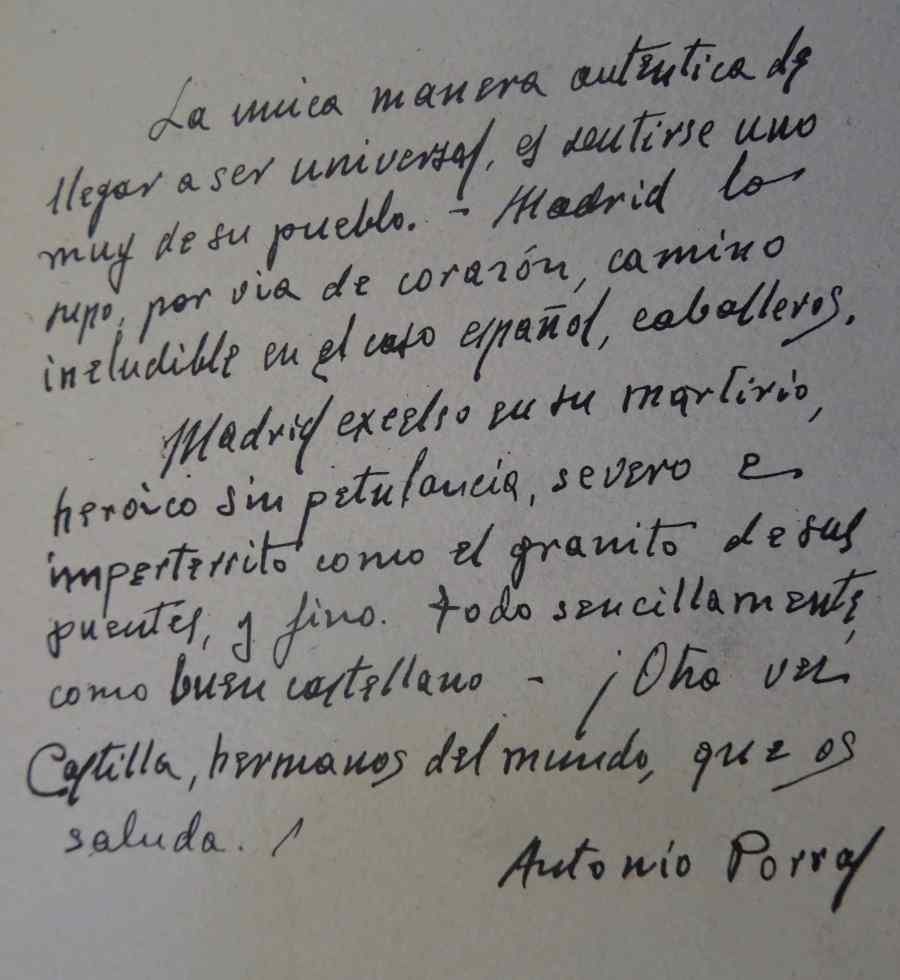 La única manera auténtica de
llegar a ser universal, es sentirse uno
muy de su pueblo. - Madrid lo
supo, por via de corazón, camino
ineludible en el caso español, caballeros.
Madrid excelso en su martirio,
heróico sin petulancia, severo e
imperterrito como el granito de sus
puentes, y fino. todo sencillamente,
como buen castellano - ¡Otra vez
Castilla, hermanos del mundo, que os
saluda. !
Antonio Porras